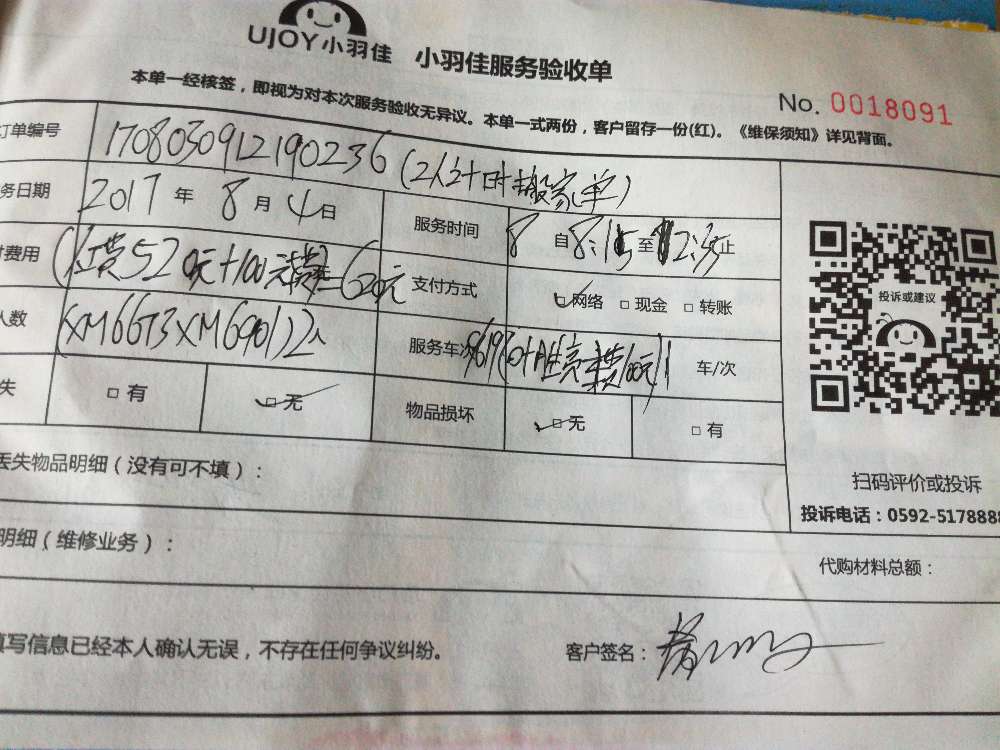 UJOY小羽佳 小羽佳服务验收单
本单一经核签，即视为对本次服务验收无异议。本单一式两份，客户留存一份(红)。《维保须知》详见背面。
No. 0018091
订单编号 1708030912190236 (2人计时搬家单)
务日期 2017 年 8 月 4 日 服务时间 8 自 8:15 至 12:35 止
费用 520元+100元 =620元 支付方式 网络 □ 现金 □ 转账
人数 (XM6613XM6901)2人 服务车次 100元)1 车/次
失 □ 有 □ 无 物品损坏 □ 无 □ 有
投诉或建议
丢失物品明细（没有可不填）：
扫码评价或投诉
投诉电话：0592-5178888
明细（维修业务）：
代购材料总额：
填写信息已经本人确认无误，不存在任何争议纠纷。 客户签名：